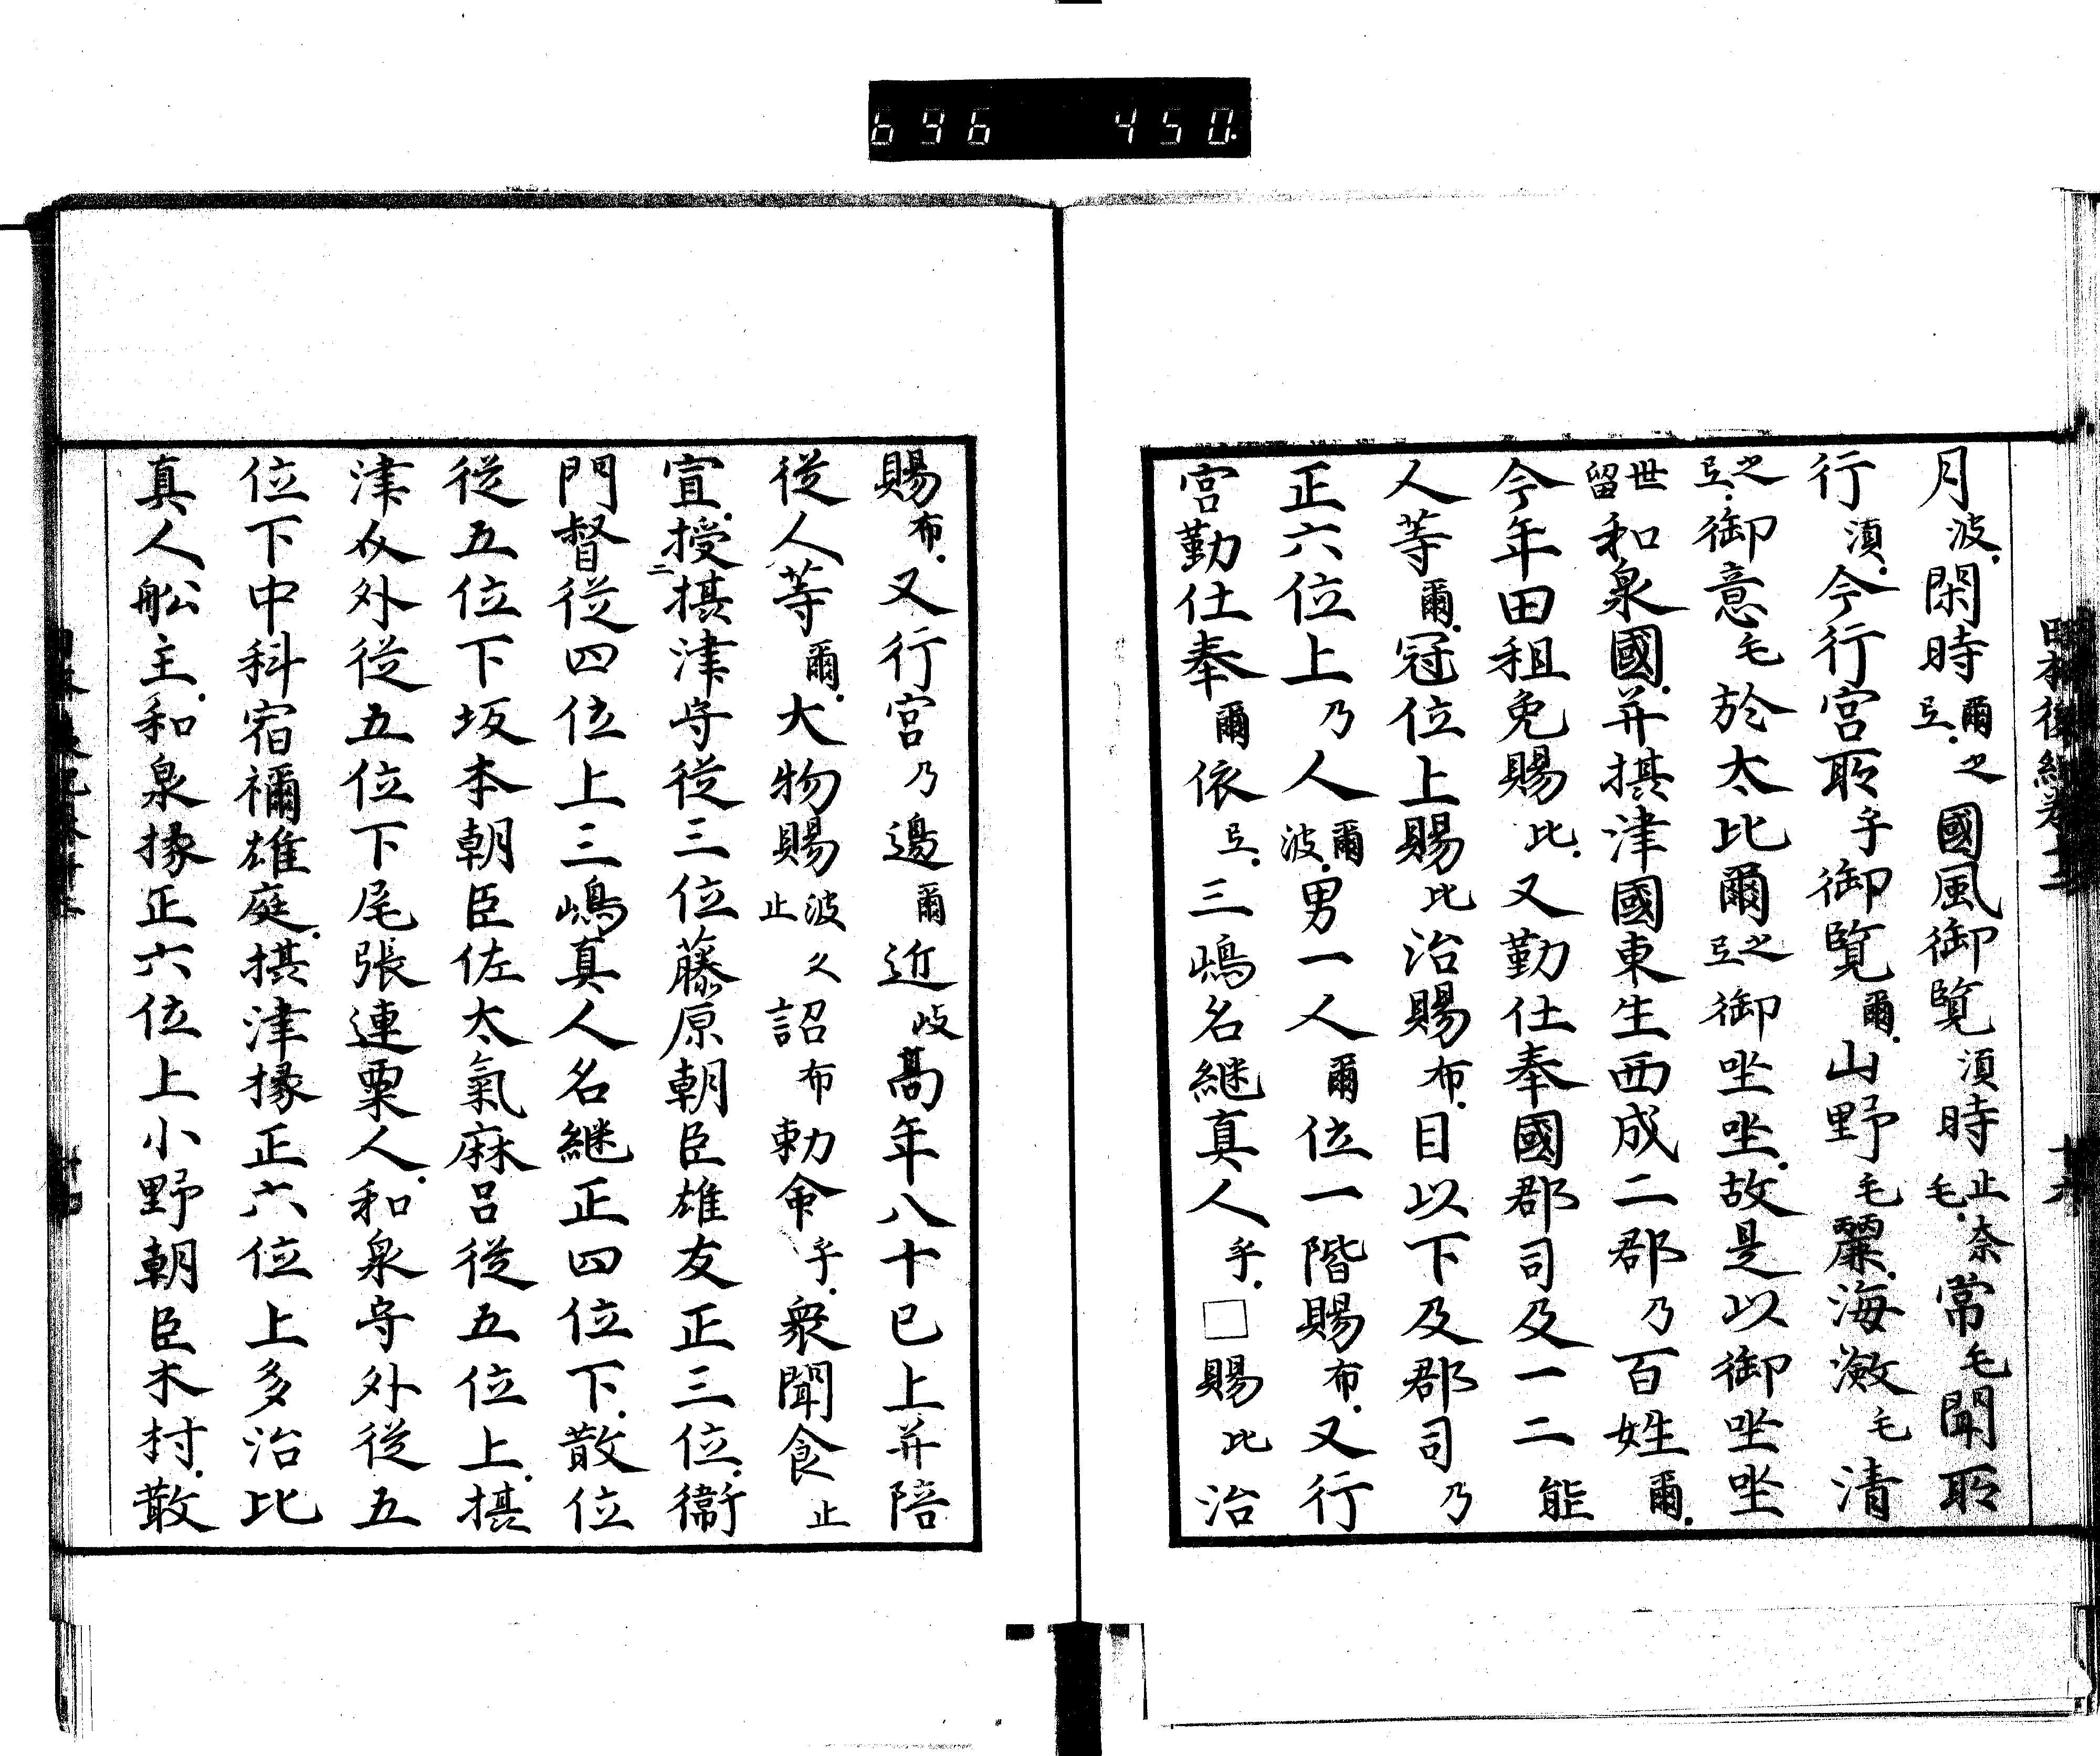 696 450
日本後紀卷十二 十六
月波閑時爾之弖國風御覧湏時止奈毛常毛聞𫠦
行湏今行宮𫠦乎御覧爾山野毛麗海瀲毛清
之弖御意毛於太比爾之弖御坐坐故是以御坐坐
世留和泉國并摂津國東生西成二郡乃百姓爾
今年田租免賜比又勤仕奉國郡司及一二能
人等爾冠位上賜比治賜布目以下及郡司乃
正六位上乃人爾波男一人爾位一階賜布又行
宮勤仕奉爾依弖三嶋名継真人乎□賜比治
賜布又行宮乃邊爾近岐髙年八十已上并陪
従人等爾大物賜波久止詔布勅命乎衆聞食止
宣授二摂津守従三位藤原朝臣雄友正三位衛
門督従四位上三嶋真人名継正四位下散位
従五位下坂本朝臣佐太氣麻呂従五位上摂
津介外従五位下尾張連粟人和泉守外従五
位下中科宿禰雄庭摂津掾正六位上多治比
真人舩主和泉掾正六位上小野朝臣木村散